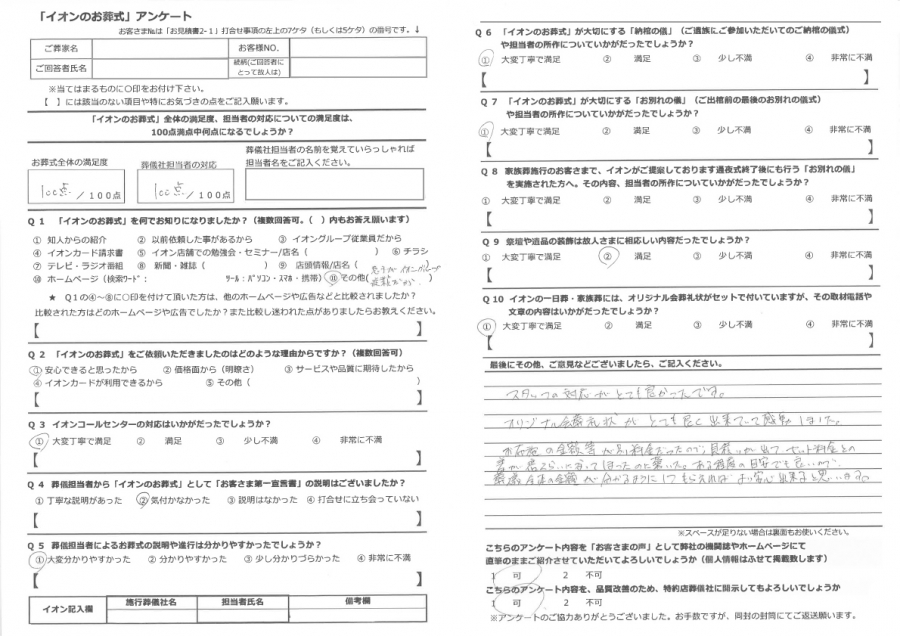 「イオンのお葬式」アンケート
お客さま№は「お見積書2-1」打合せ事項の左上の7ケタ（もしくは5ケタ）の番号です。↓
ご葬家名 お客様NO.
ご回答者氏名 続柄(ご回答者にとって故人は)
※当てはまるものに〇印をお付け下さい。
【　】には該当のない項目や特にお気づきの点をご記入願います。
「イオンのお葬式」全体の満足度、担当者の対応についての満足度は、
100点満点中何点になるでしょうか？
葬儀社担当者の名前を覚えていらっしゃれば
担当者名をご記入ください。
お葬式全体の満足度 葬儀社担当者の対応
100点／100点 100点／100点
Q１ 「イオンのお葬式」を何でお知りになりましたか？（複数回答可。（　）内もお答え願います）
① 知人からの紹介 ② 以前依頼した事があるから ③ イオングループ従業員だから
④ イオンカード請求書 ⑤ イオン店舗での勉強会・セミナー/店名（　） ⑥ チラシ
⑦ テレビ・ラジオ番組 ⑧ 新聞・雑誌（　） ⑨ 店頭情報/店名（　）
⑩ ホームページ（検索ﾜｰﾄﾞ： ツール：ﾊﾟｿｺﾝ・ｽﾏﾎ・携帯） ⑪ その他（ イオングループ ）
★ Q１の④～⑧に〇印を付けて頂いた方は、他のホームページや広告などと比較されましたか？
比較された方はどのホームページや広告でしたか？また比較し迷われた点がありましたらお教えください。
【　】
Q２ 「イオンのお葬式」をご依頼いただきましたのはどのような理由からですか？（複数回答可）
① 安心できると思ったから ② 価格面から（明瞭さ） ③ サービスや品質に期待したから
④ イオンカードが利用できるから ⑤ その他（　）
【　】
Q３ イオンコールセンターの対応はいかがだったでしょうか？
① 大変丁寧で満足 ② 満足 ③ 少し不満 ④ 非常に不満
【　】
Q４ 葬儀担当者から「イオンのお葬式」として「お客さま第一宣言書」の説明はございましたか？
① 丁寧な説明があった ② 気付かなかった ③ 説明はなかった ④ 打合せに立ち会っていない
【　】
Q５ 葬儀担当者によるお葬式の説明や進行は分かりやすかったでしょうか？
① 大変分かりやすかった ② 分かりやすかった ③ 少し分かりづらかった ④ 非常に不満
【　】
イオン記入欄 施行葬儀社名 担当者氏名 備考欄
Q６ 「イオンのお葬式」が大切にする「納棺の儀」（ご遺族にご参加いただいてのご納棺の儀式）
や担当者の所作についていかがだったでしょうか？
① 大変丁寧で満足 ② 満足 ③ 少し不満 ④ 非常に不満
【　】
Q７ 「イオンのお葬式」が大切にする「お別れの儀」（ご出棺前の最後のお別れの儀式）
や担当者の所作についていかがだったでしょうか？
① 大変丁寧で満足 ② 満足 ③ 少し不満 ④ 非常に不満
【　】
Q８ 家族葬施行のお客さまで、イオンがご提案しております通夜式終了後にも行う「お別れの儀」
を実施された方へ。その内容、担当者の所作についていかがだったでしょうか？
① 大変丁寧で満足 ② 満足 ③ 少し不満 ④ 非常に不満
【　】
Q９ 祭壇や遺品の装飾は故人さまに相応しい内容だったでしょうか？
① 大変丁寧で満足 ② 満足 ③ 少し不満 ④ 非常に不満
【　】
Q10 イオンの一日葬・家族葬には、オリジナル会葬礼状がセットで付いていますが、その取材電話や
文章の内容はいかがだったでしょうか？
① 大変丁寧で満足 ② 満足 ③ 少し不満 ④ 非常に不満
【　】
最後にその他、ご意見などございましたら、ご記入ください。
スタッフの対応がとても良かったです。
オリジナル会葬礼状がとても良く出来ていて感動しました。
の金額等が別料金だったので 出て セット料金との
ある程度の目安でも良いので
全体の金額が分かるようにしてもらえれば より安心出来ると思います。
※スペースが足りない場合は裏面もお使いください。
こちらのアンケート内容を「お客さまの声」として弊社の機関誌やホームページにて
直筆のままご紹介させていただいてよろしいでしょうか（個人情報はふせて掲載致します）
1 可 2 不可
こちらのアンケート内容を、品質改善のため、特約店葬儀社に開示してもよろしいでしょうか
1 可 2 不可
※アンケートのご協力ありがとうございました。お手数ですが、同封の封筒にてご返送願います。